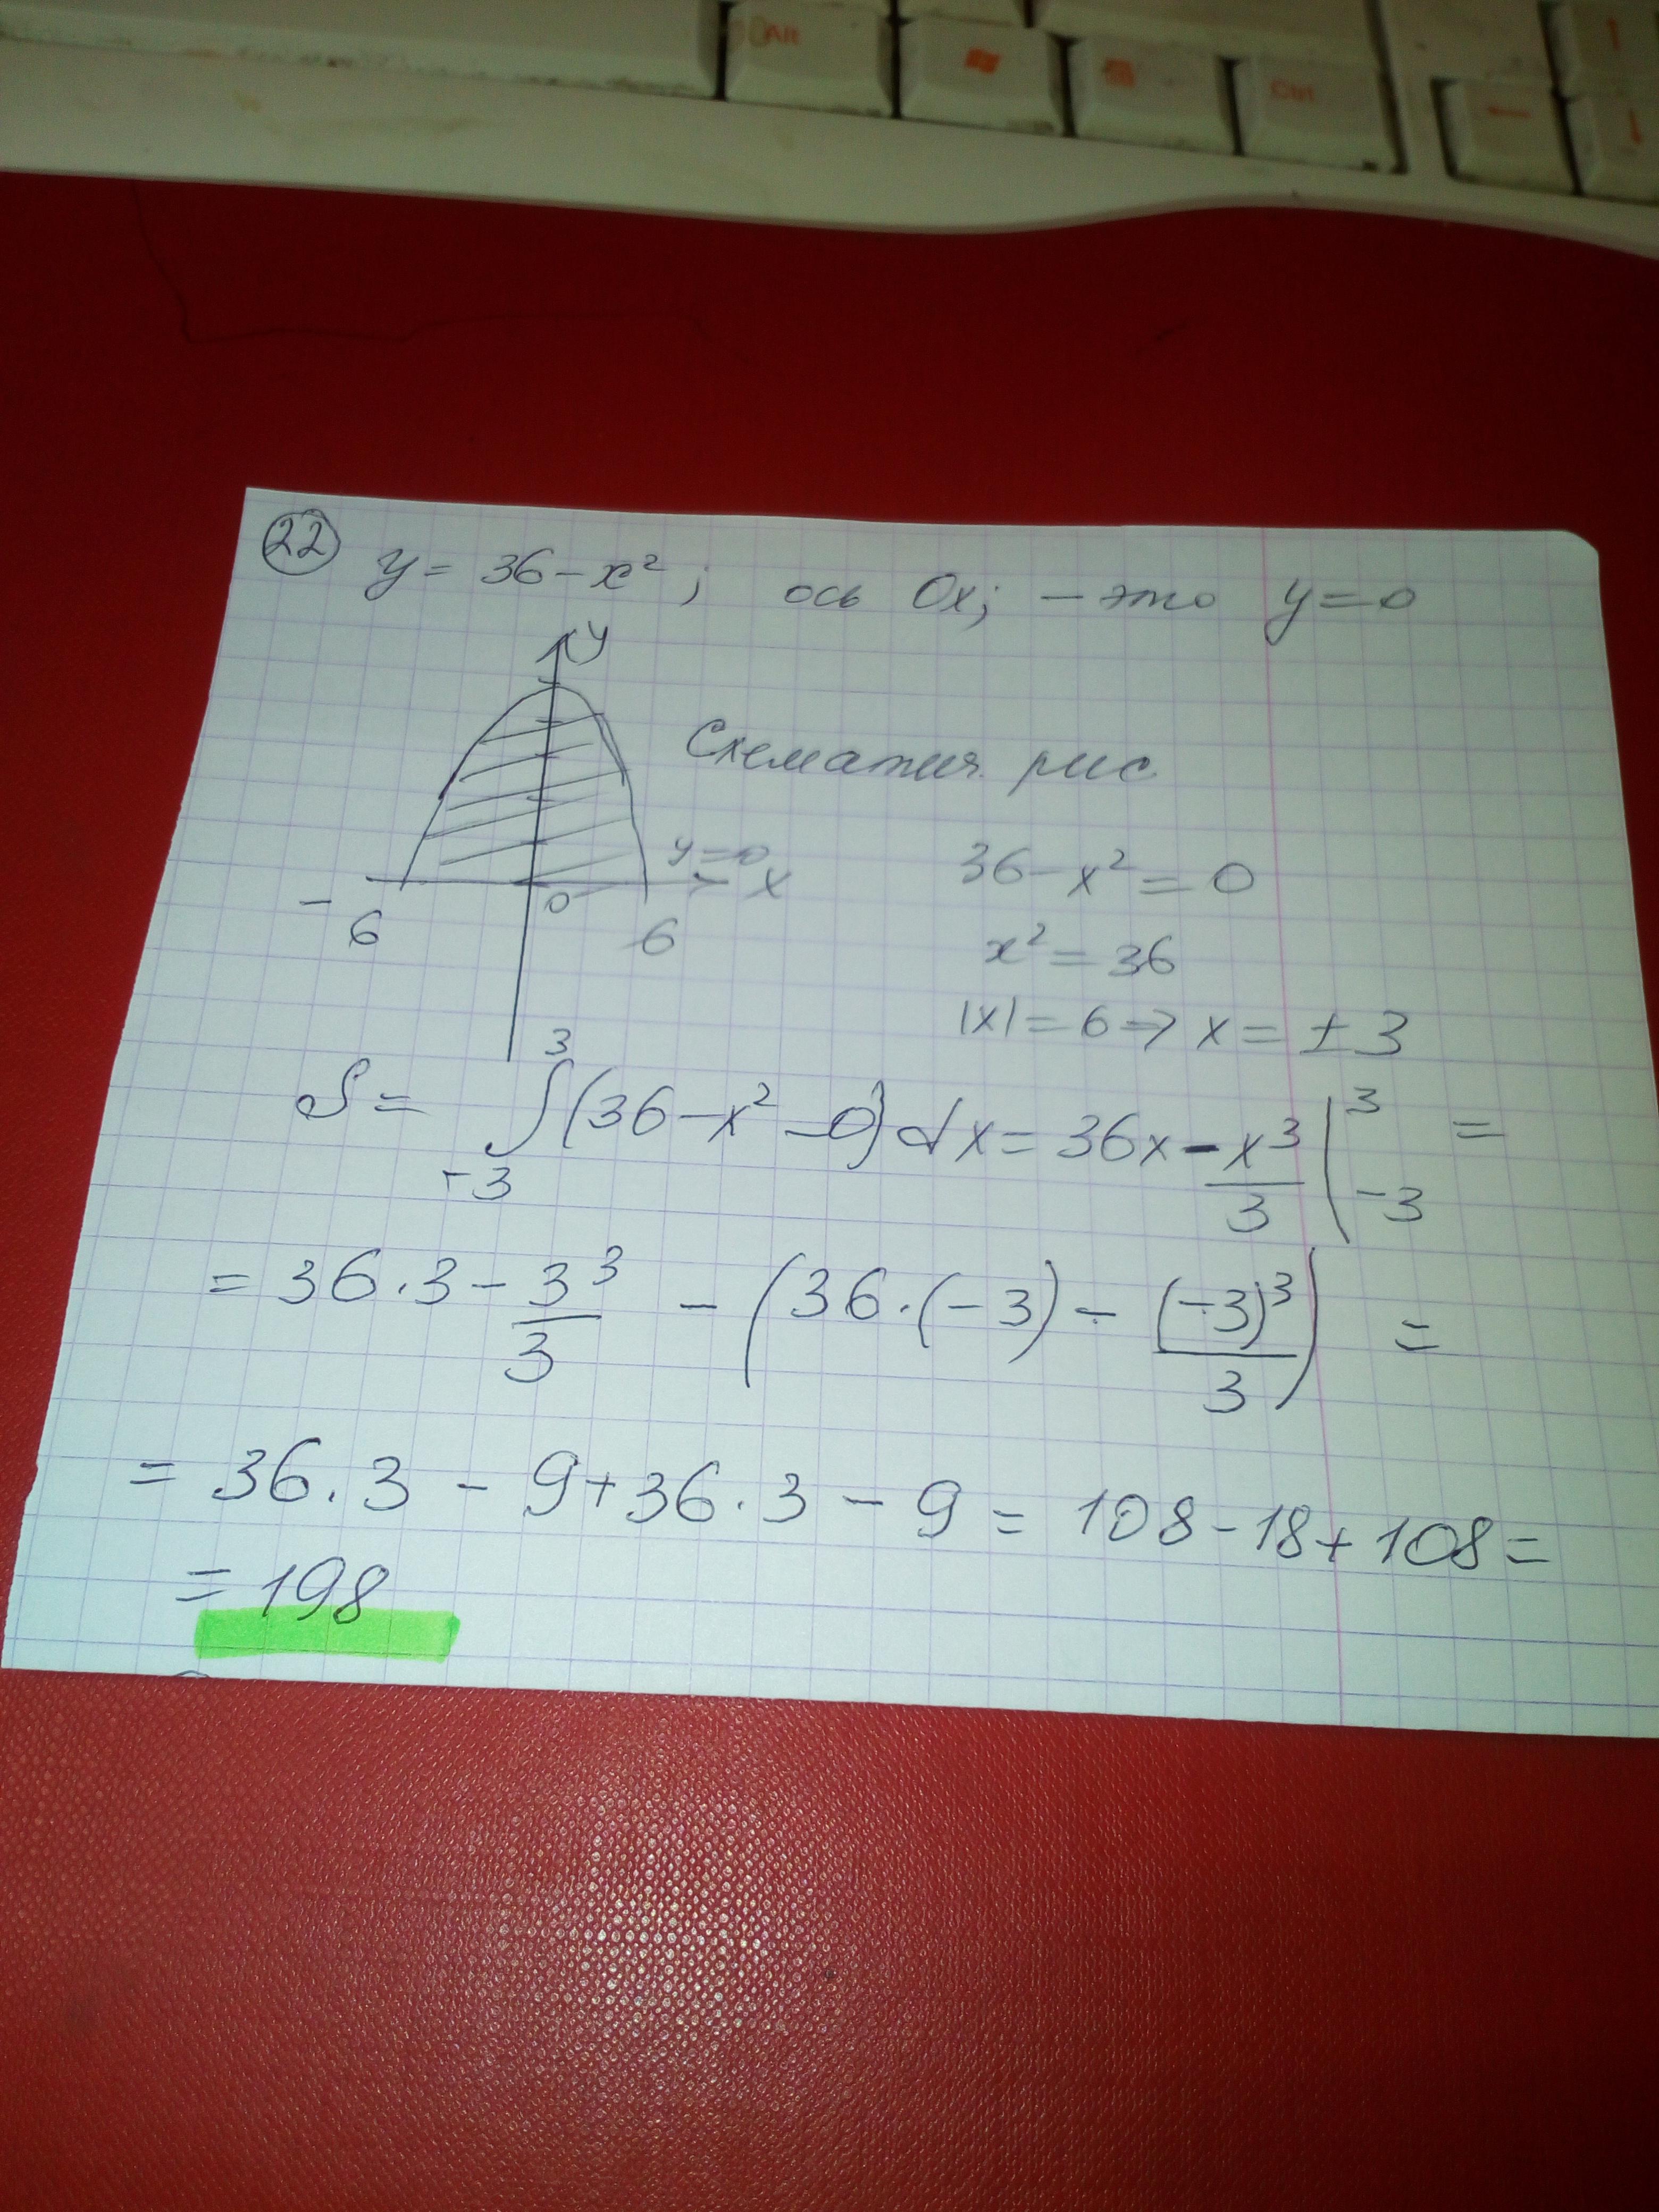 Alt
Ctrl
22 y = 36 - x²; ось Ox; - это y = 0
y
Схематич. рис
y = 0
x
0
-6
6
36 - x² = 0
x² = 36
|x| = 6 => x = ± 3
S = ∫₋₃³ (36 - x² - 0) dx = 36x - x³/3 |₋₃³ =
= 36 · 3 - 3³/3 - (36 · (-3) - (-3)³/3) =
= 36 · 3 - 9 + 36 · 3 - 9 = 108 - 18 + 108 =
= 198